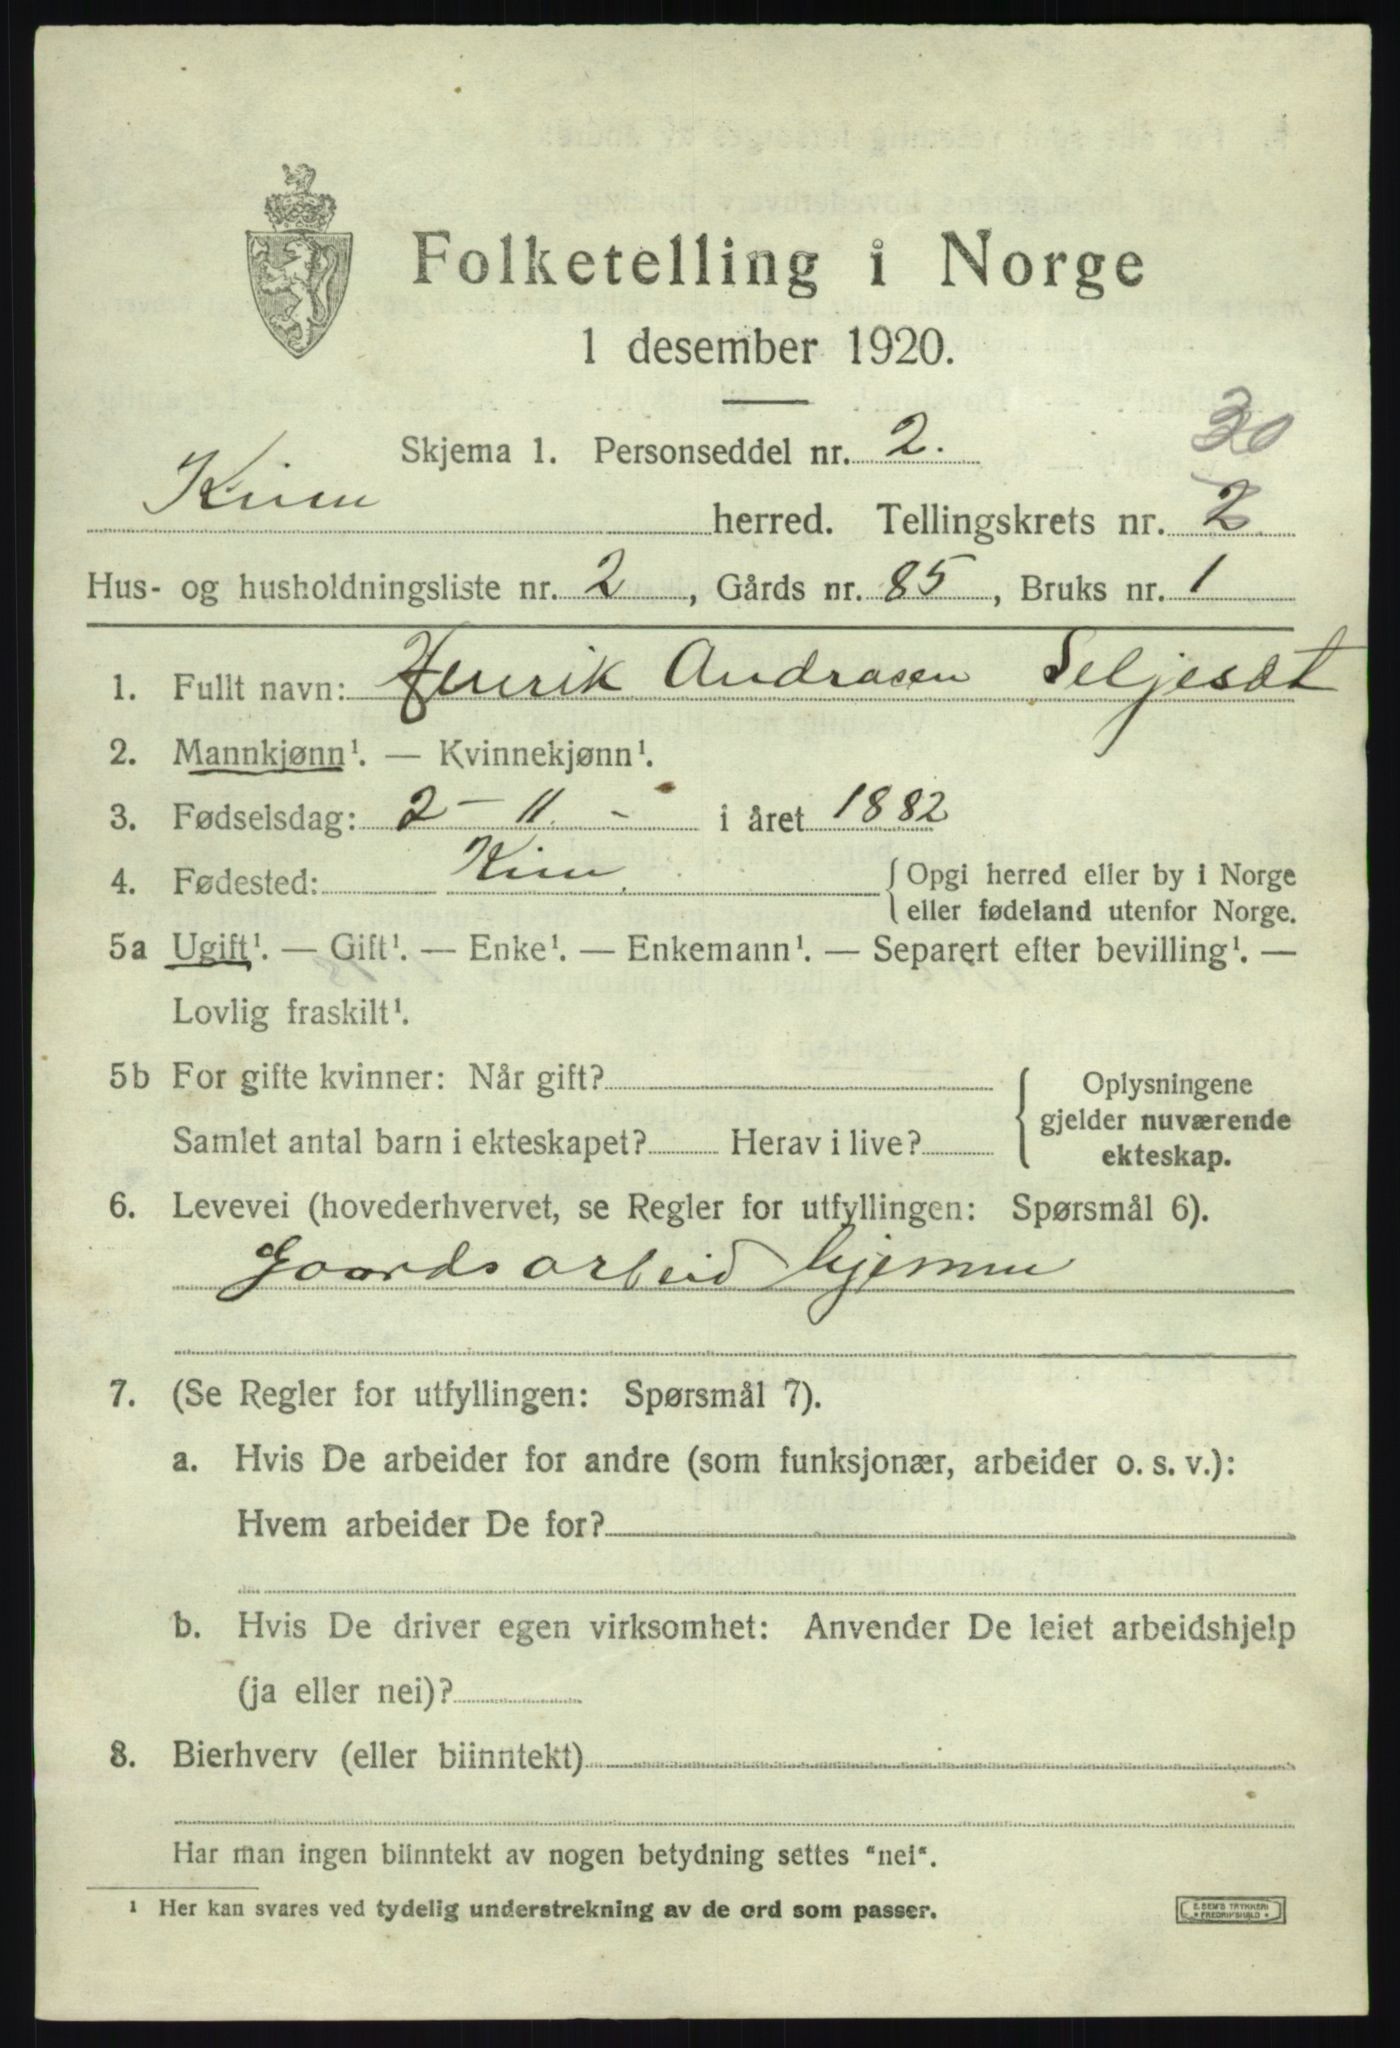 Folketelling i Norge
1 desember 1920.
30
Skjema 1. Personseddel nr. 2.
Kinn herred. Tellingskrets nr. 2
Hus- og husholdningsliste nr. 2, Gårds nr. 85, Bruks nr. 1
1. Fullt navn: Henrik Andrasen Seljesæt
2. Mannkjønn¹. — Kvinnekjønn¹.
3. Fødselsdag: 2 - 11 - i året 1882
4. Fødested: Kinn. { Opgi herred eller by i Norge
eller fødeland utenfor Norge.
5a Ugift¹. — Gift¹. — Enke¹. — Enkemann¹. — Separert efter bevilling¹. —
Lovlig fraskilt¹.
5b For gifte kvinner: Når gift? { Oplysningene
gjelder nuværende
Samlet antal barn i ekteskapet? Herav i live?
ekteskap.
6. Levevei (hovederhvervet, se Regler for utfyllingen: Spørsmål 6).
Gaardsarbeid hjemme
7. (Se Regler for utfyllingen: Spørsmål 7).
a. Hvis De arbeider for andre (som funksjonær, arbeider o. s. v.):
Hvem arbeider De for?
b. Hvis De driver egen virksomhet: Anvender De leiet arbeidshjelp
(ja eller nei)?
8. Bierhverv (eller biinntekt)
Har man ingen biinntekt av nogen betydning settes "nei".
¹ Her kan svares ved tydelig understrekning av de ord som passer.
E. SEM'S TRYKKERI
* FREDRIKSHALD *